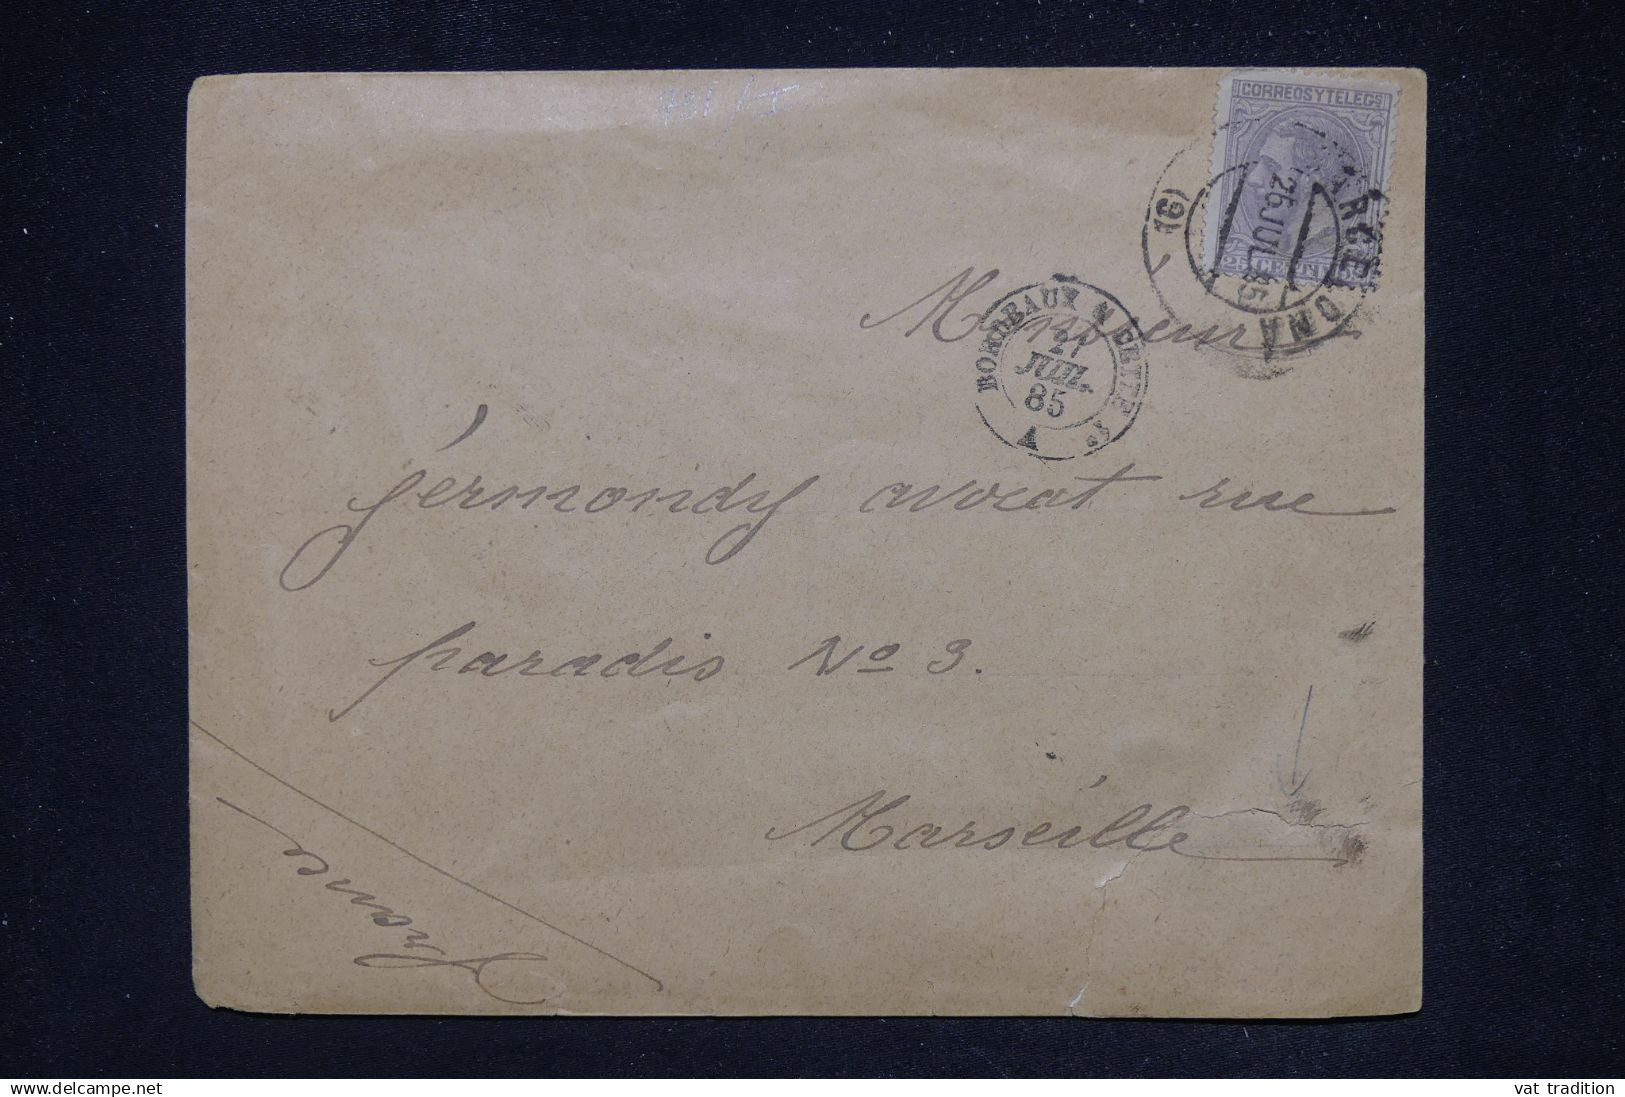 CORREOS Y TELEGS
25 CENT
BARCELONA
(6)
26 JUL 85
BORDEAUX A CETTE
JUIL.
85
A
Monsieur
Germondy avocat rue
paradis No 3.
Marseille
France
www.delcampe.net
vat_tradition